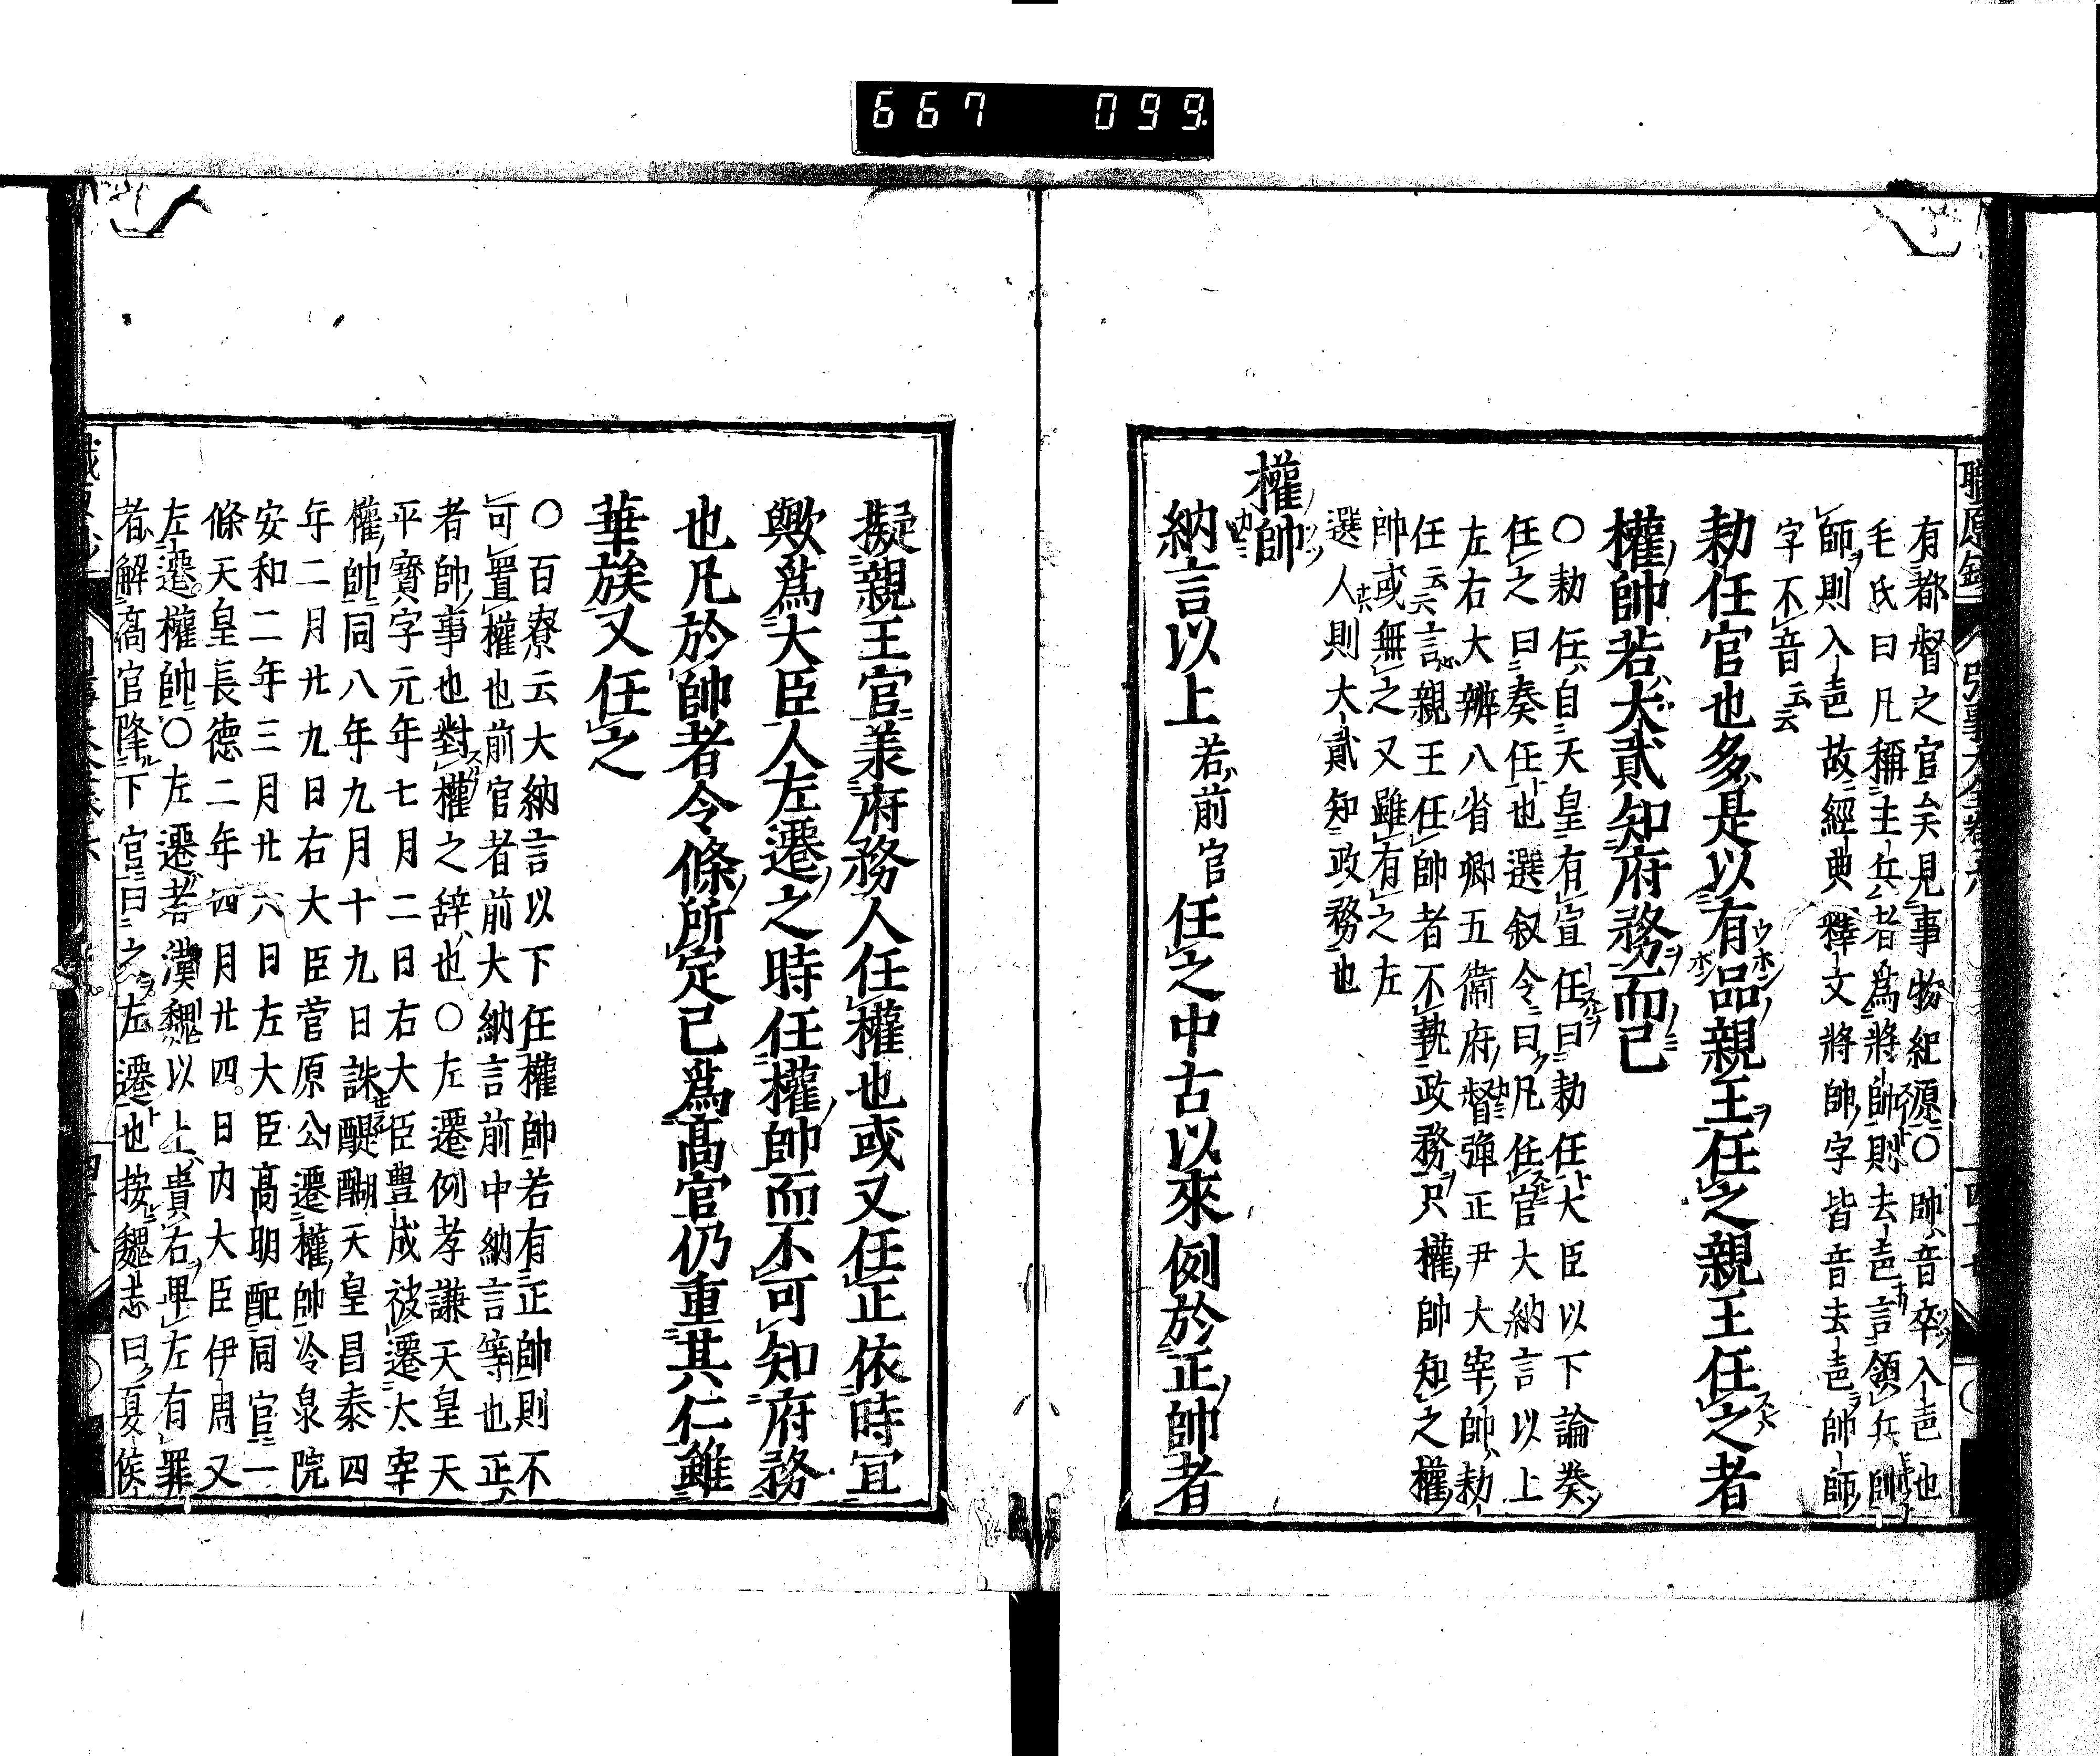 667 099
有都督之官矣見事物紀源〇帥音卒入声也
毛氏曰凡稱主兵者為將帥則去声言領兵帥
師則入声故經典釋文將帥字皆音去声帥師
字不音云云
勅任官也多是以有品親王任之親王任之者
權帥若大貳知府務而已
〇勅任自天皇有宣任曰勅任大臣以下論奏
任之曰奏任也選叙令曰凡任官大納言以上
左右大辨八省卿五衛府督彈正尹大宰帥勅
任云云言親王任帥者不執政務只權帥知之權
帥或無之又雖有之左
選人則大貳知政務也
權帥
納言以上若前官任之中古以來例於正帥者
擬親王官兼府務人任權也或又任正依時宜
歟為大臣人左遷之時任權帥而不可知府務
也凡於帥者令條所定已為高官仍重其仁雖
華族又任之
〇百寮云大納言以下任權帥若有正帥則不
可置權也前官者前大納言前中納言等也正
者帥事也對權之辞也〇左遷例孝謙天皇天
平寳字元年七月二日右大臣豊成被遷太宰
權帥同八年九月十九日誅醍醐天皇昌泰四
年二月廿九日右大臣菅原公遷權帥冷泉院
安和二年三月廿六日左大臣高明配同官一
條天皇長德二年四月廿四日内大臣伊周又
左遷權帥〇左遷者漢魏以上貴右卑左有罪
者解高官降下官曰之左遷也按魏志曰夏侯